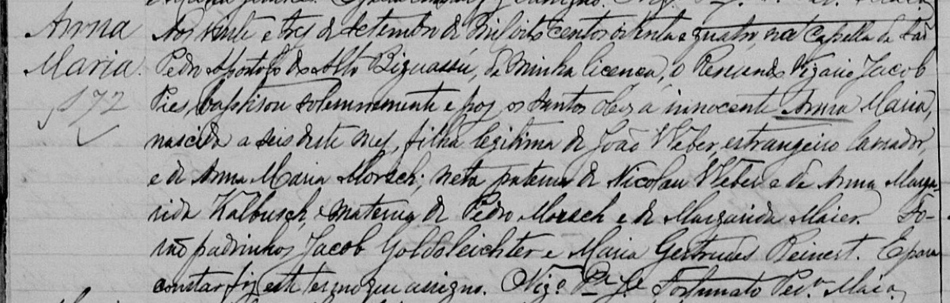 Anna
Maria
177
Aos vinte e tres de setembro de mil oito centos oitenta e quatro, na Capella de São
Pedro Apostolo do Alto Biguassú, de minha licença, o Reverendo Vigario Jacob
baptisou solemnemente e poz os santos oleos a innocente Anna Maria,
nascida a seis deste mez, filha legitima de João Weber, estrangeiro lavrador,
e de Anna Maria Morsch; neta paterna de Nicolau Weber e de Anna Marga-
rida Kalbusch e materna de Pedro Morsch e de Margarida Maier. Fo-
rão padrinhos, Jacob Goldsleichter e Maria Gertrudes Reinert. E para
constar fiz este termo que assigno. Vigº Pe Je Fortunato Per.ª Maia